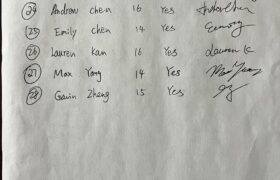 24 Andrew chen 16 Yes
25 Emily chen 14 Yes
26 Lauren Kan 16 Yes Lauren K
27 Max Yang 14 Yes
28 Gavin Zhang 15 Yes